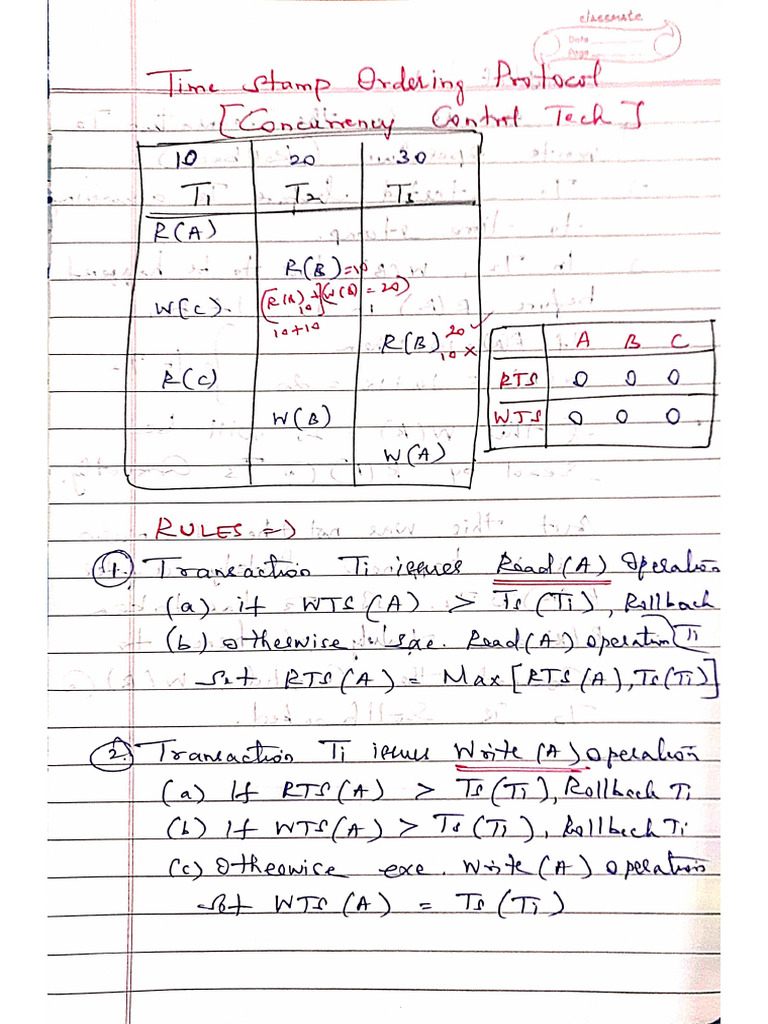 classmate
Date
Page
Time Stamp Ordering Protocol
[Concurrency Control Tech]
10 20 30
T1 T2 T3
R(A)
R(B)=10
W(C) [R(A) + (W(B) = 20)
10
10+10
R(B) 20 ✓
10 ×
A B C
R(C) RTS 0 0 0
W(B) WTS 0 0 0
W(A)
RULES =>
1. Transaction Ti issues Read(A) Operation
(a) if WTS(A) > Ts(Ti), Rollback
Ti
(b) otherwise exe. Read(A) operation
Set RTS(A) = Max[RTS(A), Ts(Ti)]
2. Transaction Ti issues Write(A) Operation
(a) If RTS(A) > Ts(Ti), Rollback Ti
(b) If WTS(A) > Ts(Ti), Rollback Ti
(c) Otherwise exe. Write(A) operation
set WTS(A) = Ts(Ti)